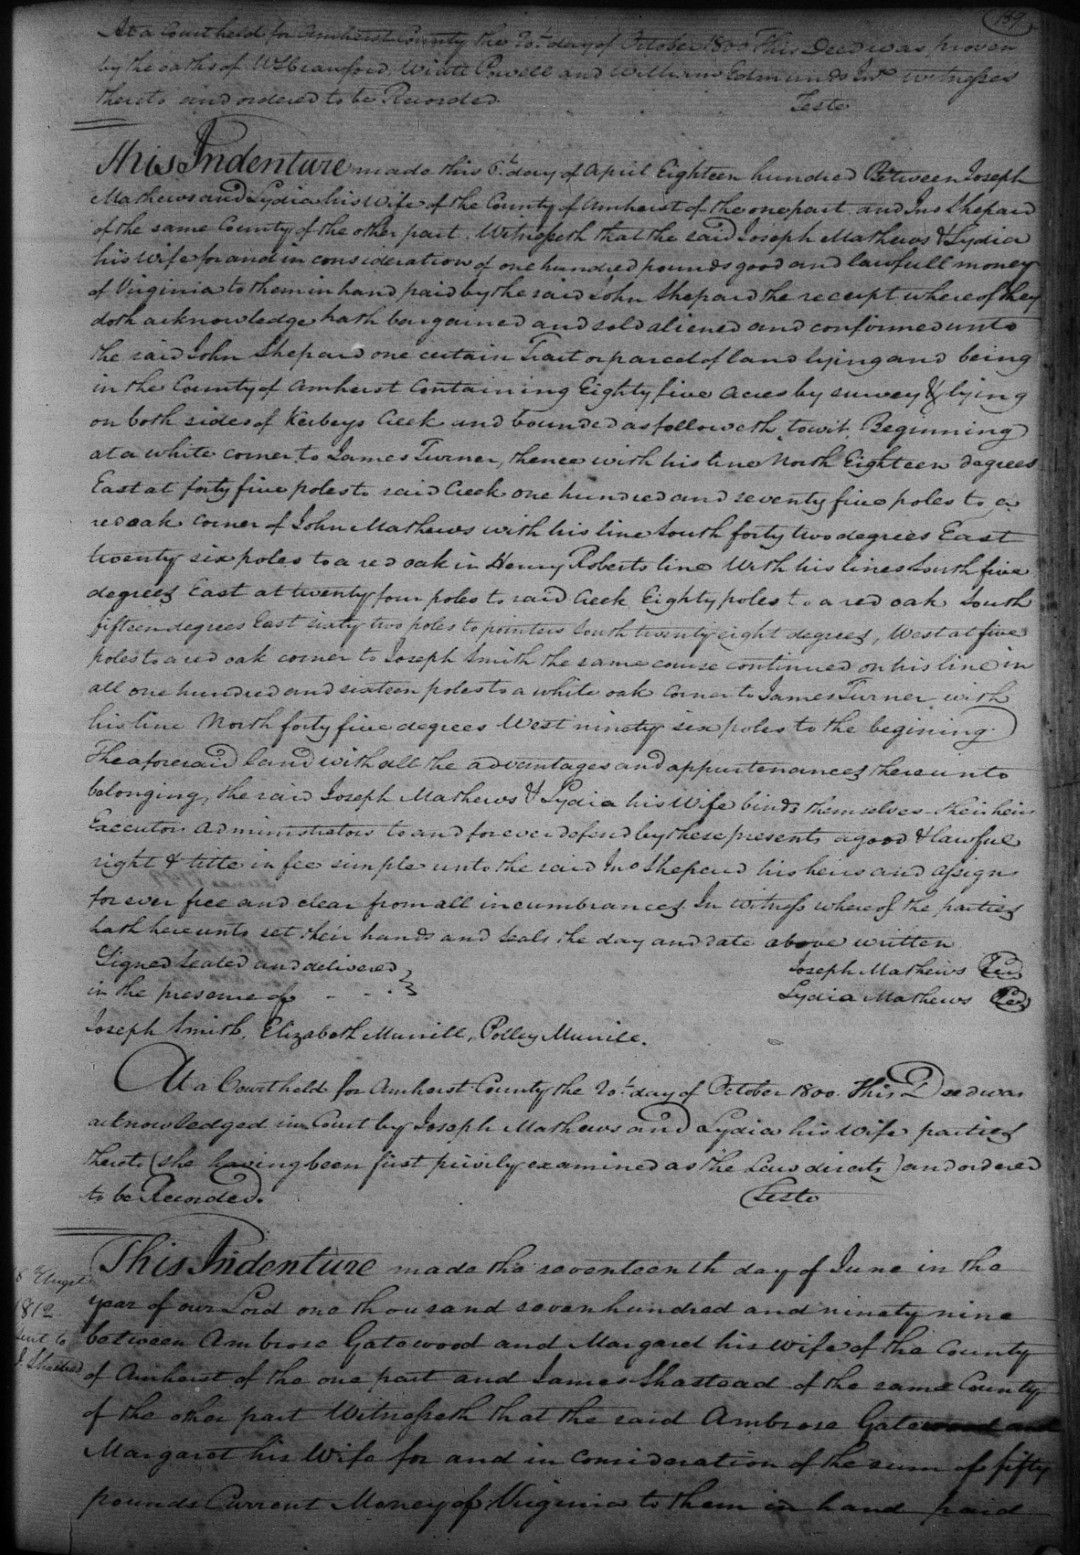 189
At a Court held for Amherst County the 20t. day of October 1800 This Deed was proven
by the oaths of WSCrawford, Wiatt Powell and William Edmunds Jnr witnesses
thereto and ordered to be Recorded.
Teste
This Indenture made this 6t. day of April Eighteen hundred Between Joseph
Mathews and Lydia his Wife of the County of Amherst of the one part and Jno Shepard
of the same County of the other part. Witnesseth that the said Joseph Mathews & Lydia
his Wife for and in consideration of one hundred pounds good and lawfull money
of Virginia to them in hand paid by the said John Shepard the receipt whereof they
doth acknowledge hath bargained and sold aliened and confirmed unto
the said John Shepard one certain Tract or parcel of land lying and being
in the County of Amherst Containing Eighty five acres by survey & lying
on both sides of Kerbeys Creek and bounded as followeth, towit, Beginning
at a white corner to James Turner, thence with his line North Eighteen degrees
East at forty five poles to said Creek one hundred and seventy five poles to a
red oak corner of John Mathews with his line South forty two degrees East
twenty six poles to a red oak in Henry Roberts line With his lines South five
degrees East at twenty four poles to said Creek Eighty poles to a red oak South
fifteen degrees East sixty two poles to pointers South twenty eight degrees, West at five
poles to a red oak corner to Joseph Smith the same course continued on his line in
all one hundred and sixteen poles to a white oak corner to James Turner with
his line North forty five degrees West ninety six poles to the begining.
The aforesaid land with all the advantages and appurtenances thereunto
belonging, the said Joseph Mathews & Lydia his Wife binds themselves their heirs
Executors administrators to and forever defend by these presents a good & lawful
right & title in fee simple unto the said Jno Shepard his heirs and assigns
for ever free and clear from all incumbrances, In witness whereof the parties
hath hereunto set their hands and seals the day and date above written
Signed Sealed and delivered
in the presence of
Joseph Mathews
Lydia Mathews
Joseph Smith, Elizabeth Murrill, Polley Murrill.
At a Court held for Amherst County the 20t. day of October 1800. This Deed was
acknowledged in Court by Joseph Mathews and Lydia his Wife parties
thereto (she having been first privily examined as the Law directs) and ordered
to be Recorded.
Teste
This Indenture made the seventeenth day of June in the
year of our Lord one thousand seven hundred and ninety nine
between Ambrose Gatewood and Margaret his wife of the County
of Amherst of the one part and James Shastead of the same County
of the other part Witnesseth that the said Ambrose Gatewood and
Margaret his Wife for and in Consideration of the sum of fifty
pounds Current Money of Virginia to them in hand paid
1812
Sent to
J. Shastead